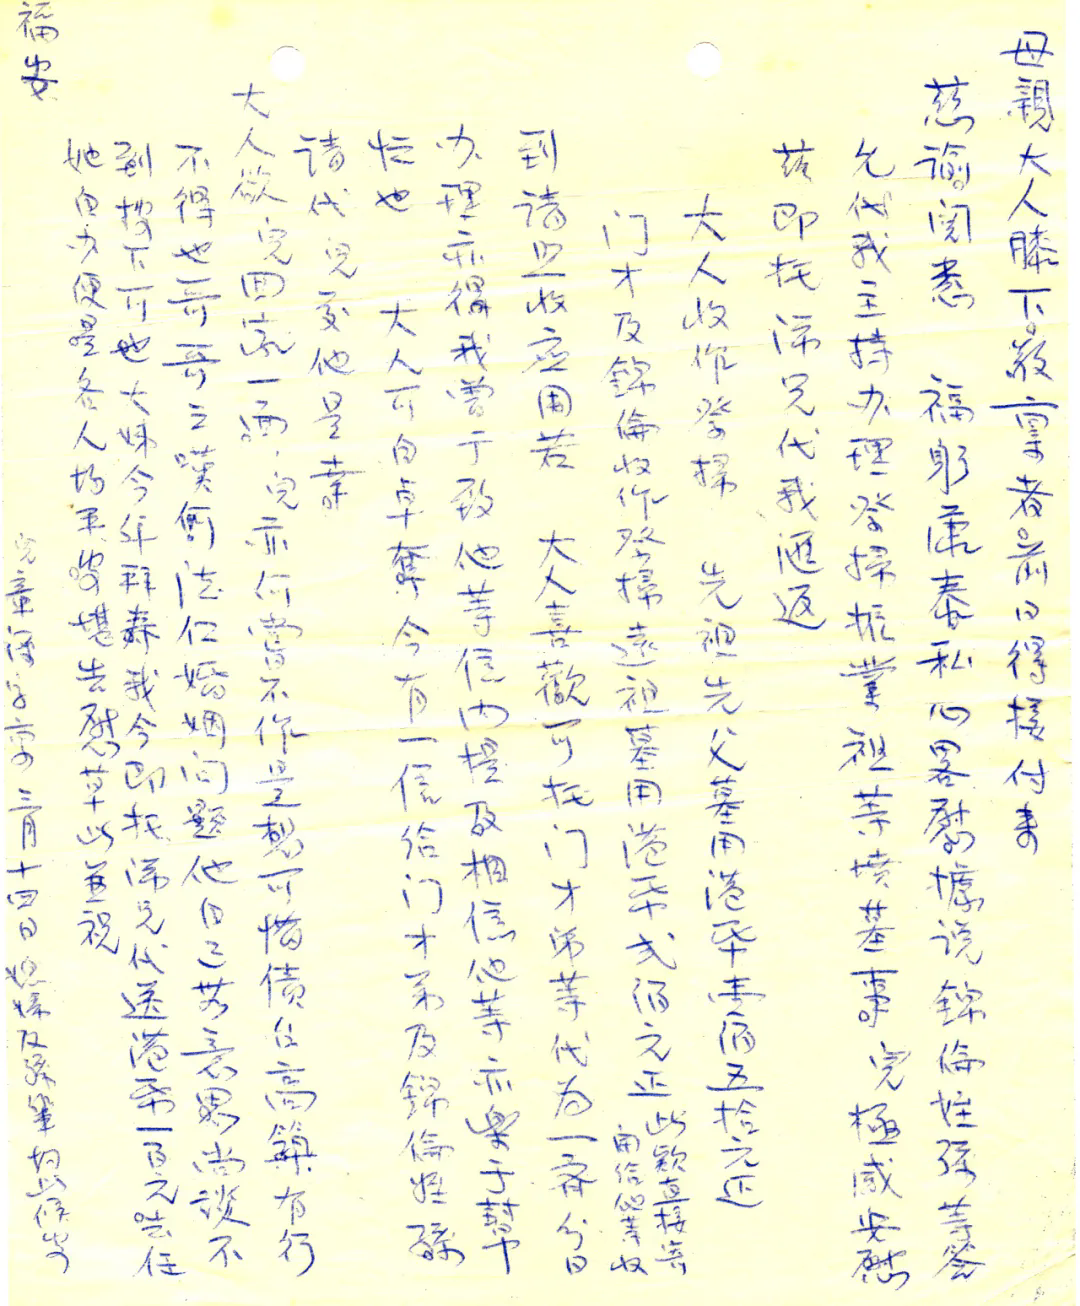 母親大人膝下敬稟者前日得接付來
慈諭閱悉 福躬康泰私心畧慰據說錦倫姪孫等答
允代我主持办理祭掃振業祖等墳墓事 兒極感安慰
茲即托 兄代我匯返
大人收作祭掃 先祖先父墓用港币壹佰五拾元正
门才及錦倫收作祭掃遠祖墓用港币弍佰元正 此款直接寄 給他等收
到請照收应用若 大人喜歡可托门才弟等代为一齐分日
办理亦得我曾于致他等信内提及相信他等亦樂于幫
忙也 大人可自卓奪今有一信给门才弟及錦倫姪孫
請代兒交他是幸
大人欲兒回家一洒兒亦何嘗不作是想可惜債台高築有行
不得也哥哥之嘆何 法仁婚姻问題他自己若意思尚談不
到 下可也大娣今年拜壽我今即托 兄代送港币一百元 任
她自办便是各人均平安堪告慰草此並祝
福安
兒 稟 三月十四日 媳婦及孫輩均此候安